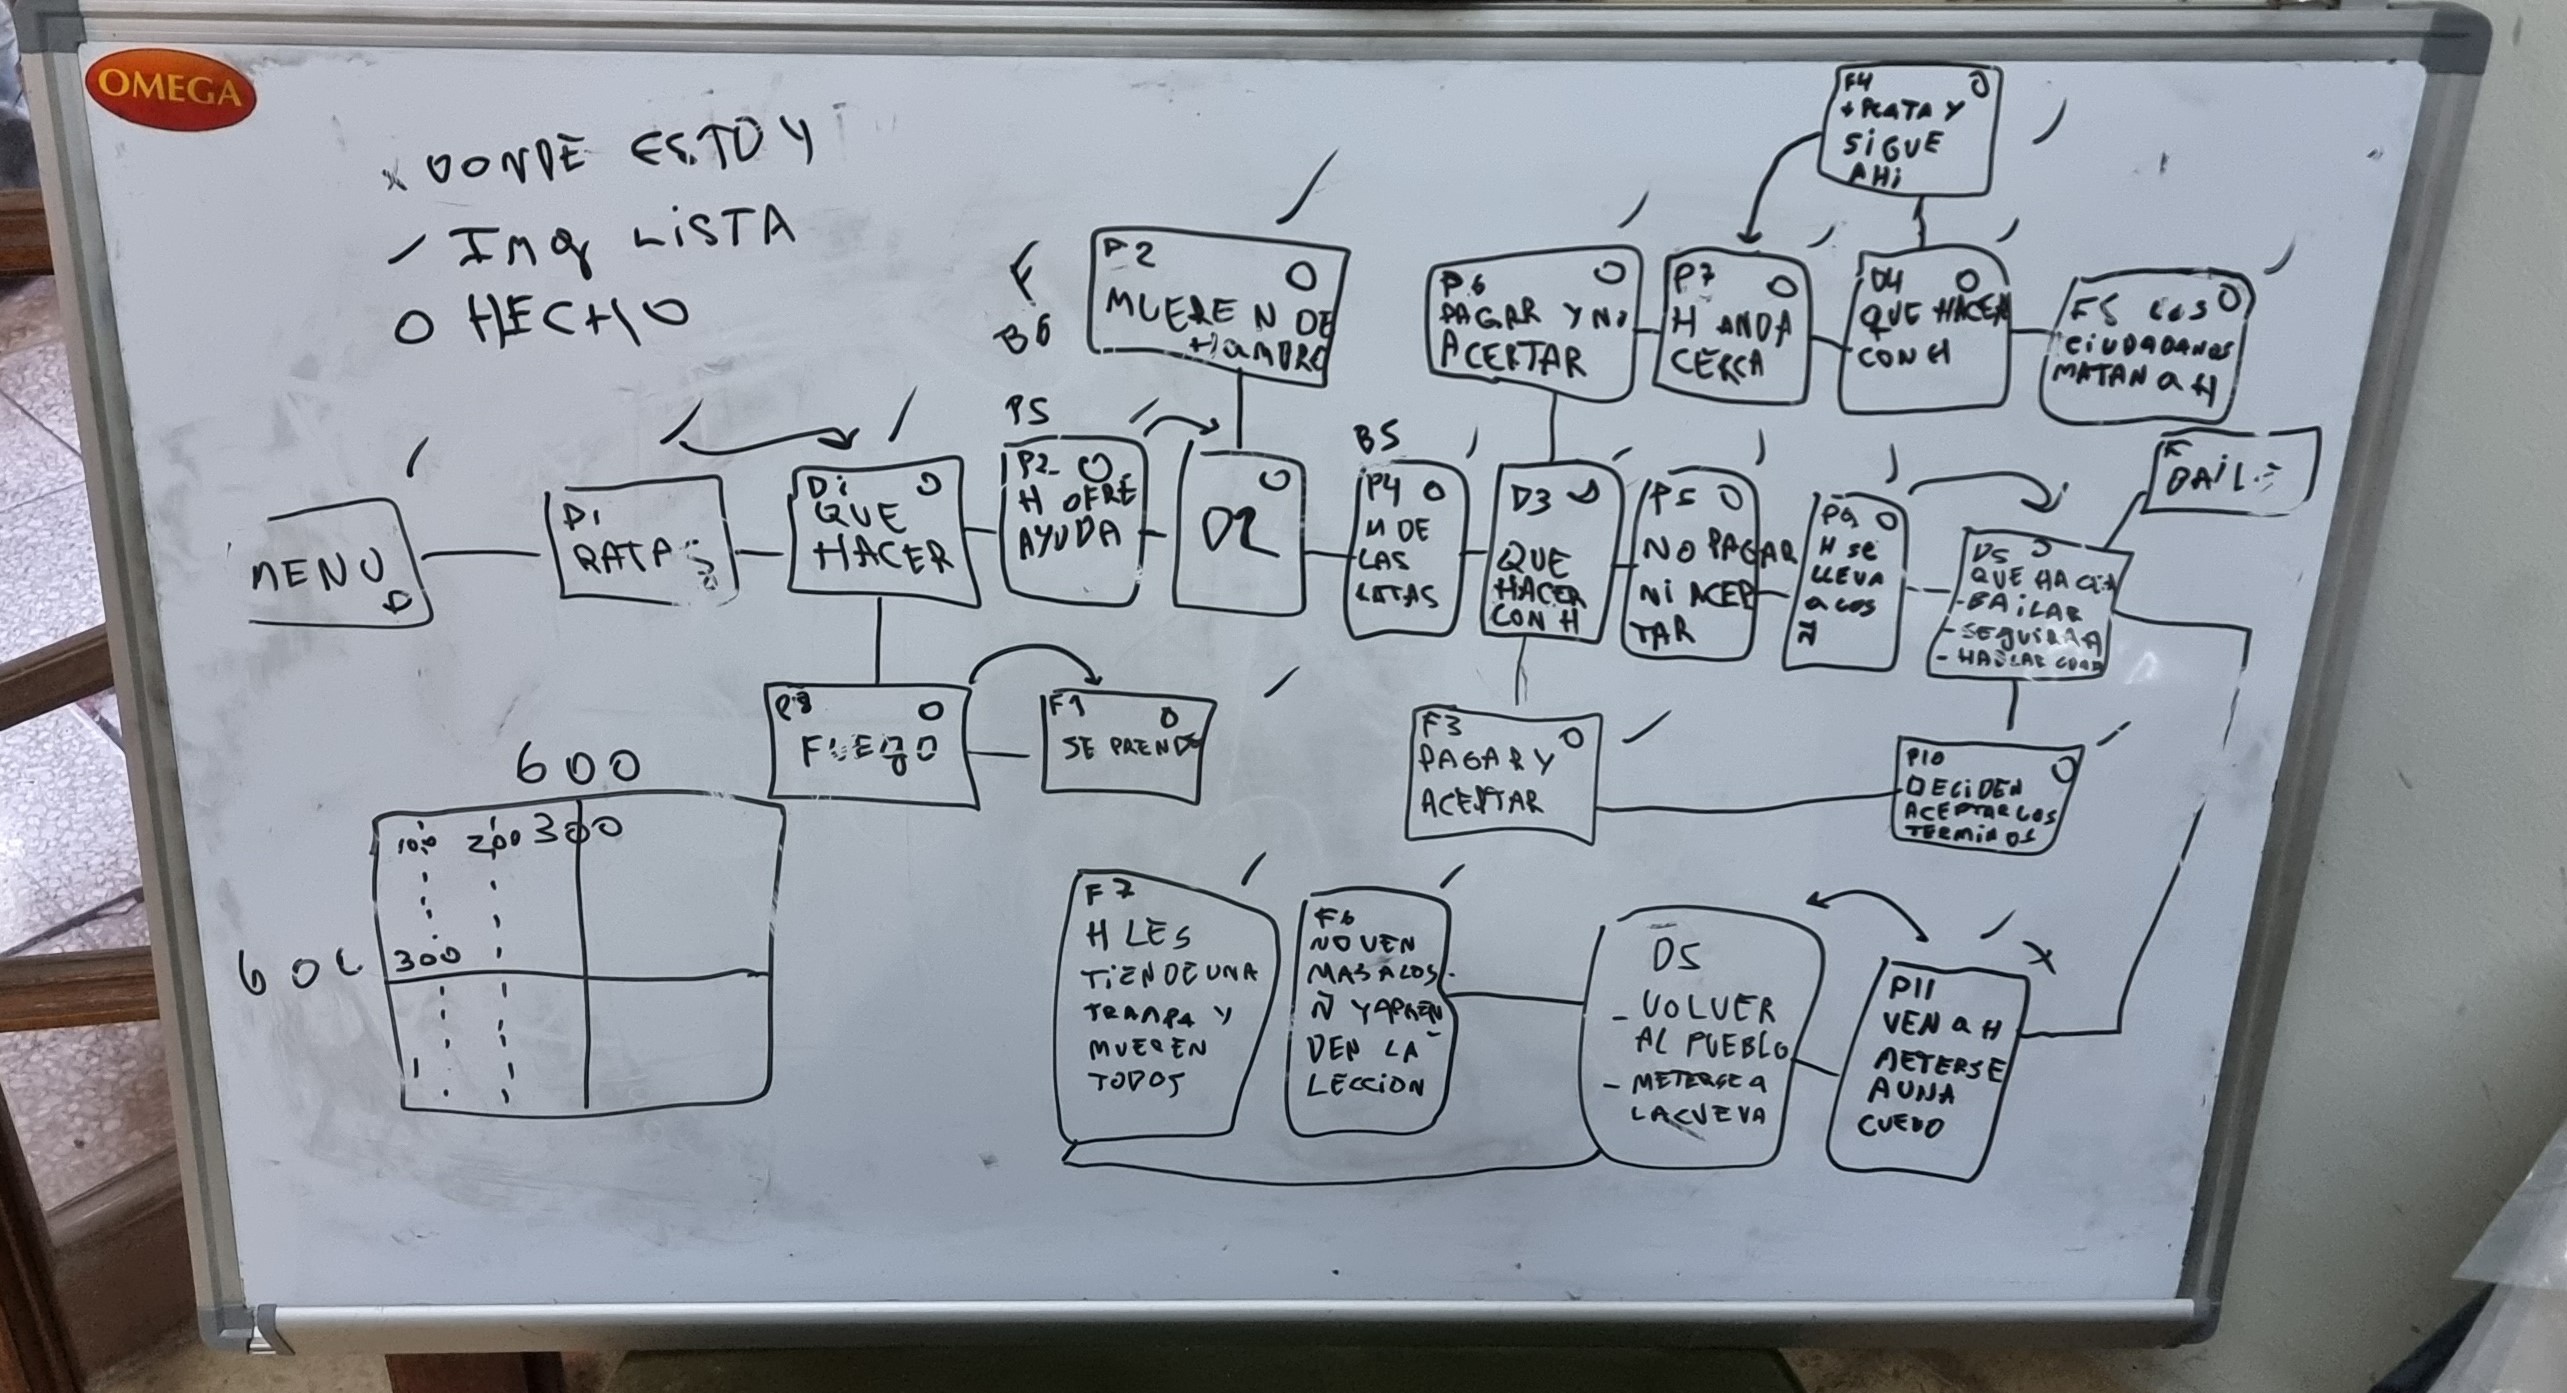 OMEGA
x DONDE ESTOY
/ Img LISTA
O HECHO
F4 O
+ PLATA Y
SIGUE
AHI
F
B6
P2 O
MUEREN DE
HAMBRE
P6 O
PAGAR Y NO
ACEPTAR
P7 O
H ANDA
CERCA
D4 O
QUE HACER
CON H
F5 LOS O
CIUDADANOS
MATAN a H
MENU
O
P1
RATAS
O
D1 O
QUE
HACER
P5
P2- O
H OFRE
AYUDA
O
D2
B5
P4 O
M DE
LAS
RATAS
D3 O
QUE
HACER
CON H
P5 O
NO PAGAR
NI ACEP
TAR
P9 O
H se
LLEVA
a LOS
Ñ
D5 O
QUE HACER
- BAILAR
- SEGUIR A
- HABLAR
F
BAILE
P8 O
FUEgO
F1 O
SE PRENDE
F3 O
PAGAR Y
ACEPTAR
P10 O
DECIDEN
ACEPTAR LOS
TERMINOS
600
100 200 300
600
300
F7
H LES
TIENDE UNA
TRAMPA Y
MUEREN
TODOS
F6
NO VEN
MAS A LOS
Ñ Y APREN
DEN LA
LECCION
D5
- VOLVER
AL PUEBLO
- METERSE a
LA CUEVA
x
P11
VEN a H
METERSE
A UNA
CUEVO